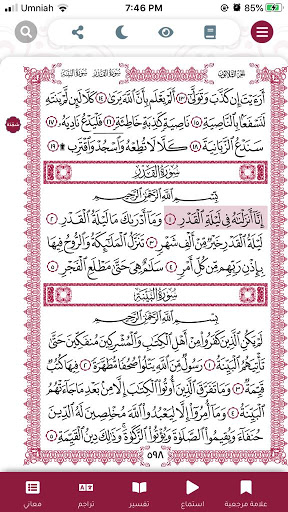 Umniah 7:46 PM 85%
الجزء الثلاثون سورة القدر سورة البينة
أَرَءَيْتَ إِن كَذَّبَ وَتَوَلَّىٰٓ ١٣ أَلَمْ يَعْلَم بِأَنَّ ٱللَّهَ يَرَىٰ ١٤ كَلَّا لَئِن لَّمْ يَنتَهِ
لَنَسْفَعًۢا بِٱلنَّاصِيَةِ ١٥ نَاصِيَةٍ كَٰذِبَةٍ خَاطِئَةٍ ١٦ فَلْيَدْعُ نَادِيَهُۥ ١٧
سَنَدْعُ ٱلزَّبَانِيَةَ ١٨ كَلَّا لَا تُطِعْهُ وَٱسْجُدْ وَٱقْتَرِب ۩ ١٩
سُورَةُ القَدْرِ
بِسْمِ ٱللَّهِ ٱلرَّحْمَٰنِ ٱلرَّحِيمِ
إِنَّآ أَنزَلْنَٰهُ فِي لَيْلَةِ ٱلْقَدْرِ ١ وَمَآ أَدْرَىٰكَ مَا لَيْلَةُ ٱلْقَدْرِ ٢
لَيْلَةُ ٱلْقَدْرِ خَيْرٌ مِّنْ أَلْفِ شَهْرٍ ٣ تَنَزَّلُ ٱلْمَلَٰٓئِكَةُ وَٱلرُّوحُ فِيهَا
بِإِذْنِ رَبِّهِم مِّن كُلِّ أَمْرٍ ٤ سَلَٰمٌ هِيَ حَتَّىٰ مَطْلَعِ ٱلْفَجْرِ ٥
سُورَةُ البَيِّنَةِ
بِسْمِ ٱللَّهِ ٱلرَّحْمَٰنِ ٱلرَّحِيمِ
لَمْ يَكُنِ ٱلَّذِينَ كَفَرُوا۟ مِنْ أَهْلِ ٱلْكِتَٰبِ وَٱلْمُشْرِكِينَ مُنفَكِّينَ حَتَّىٰ
تَأْتِيَهُمُ ٱلْبَيِّنَةُ ١ رَسُولٌ مِّنَ ٱللَّهِ يَتْلُوا۟ صُحُفًا مُّطَهَّرَةً ٢ فِيهَا كُتُبٌ
قَيِّمَةٌ ٣ وَمَا تَفَرَّقَ ٱلَّذِينَ أُوتُوا۟ ٱلْكِتَٰبَ إِلَّا مِنۢ بَعْدِ مَا جَآءَتْهُمُ
ٱلْبَيِّنَةُ ٤ وَمَآ أُمِرُوٓا۟ إِلَّا لِيَعْبُدُوا۟ ٱللَّهَ مُخْلِصِينَ لَهُ ٱلدِّينَ
حُنَفَآءَ وَيُقِيمُوا۟ ٱلصَّلَوٰةَ وَيُؤْتُوا۟ ٱلزَّكَوٰةَ وَذَٰلِكَ دِينُ ٱلْقَيِّمَةِ ٥
٥٩٨
علامة مرجعية استماع تفسير تراجم معاني